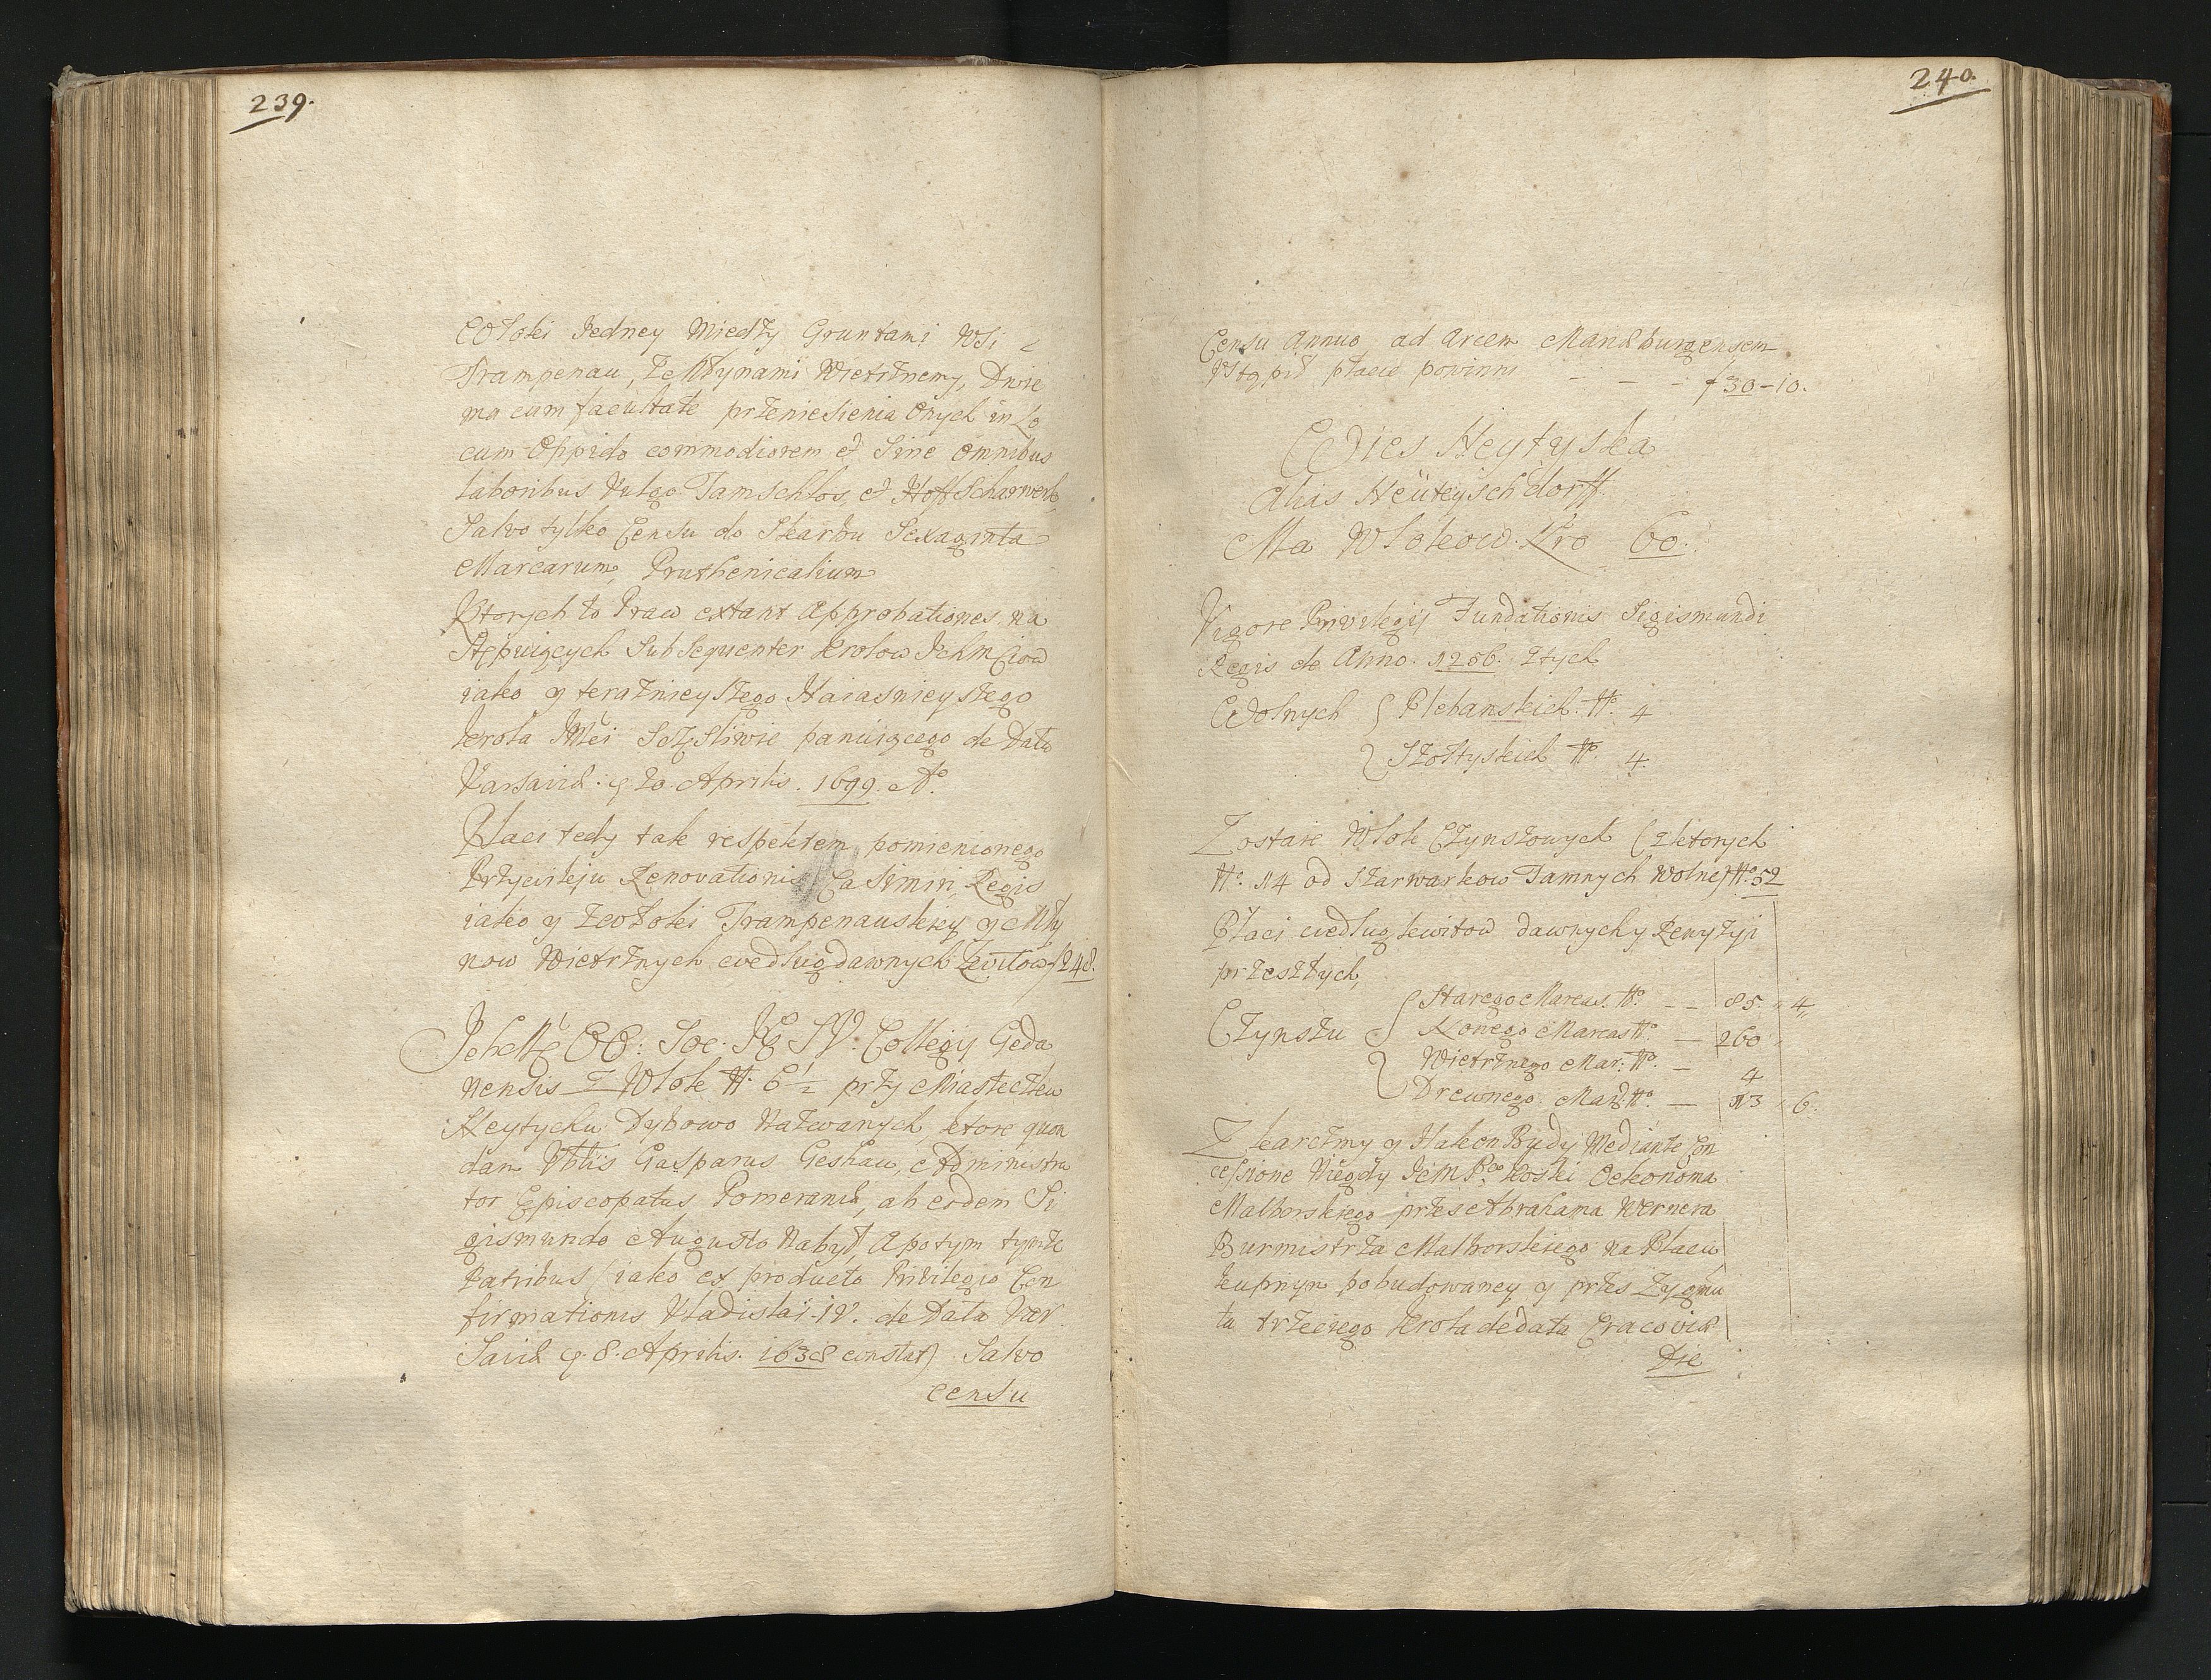 239.
Włoki Jedney Między Gruntami WSi
Trampenau, Ze Młynami Wietrznemy, Dwie
ma cum facultate przeniesienia Onych in Lo
cum Oppido commodiorem et Sine omnibus
laboribus Vulgo Tamschlos et Hoff Scharwerk
Salvo tylko Censu do Skarbu Sexaginta
Marcarum Pruthenicalium
Ktorych to Praw extant Approbationes na
Stępuiących SubSequenter Krolow Ichm Ciow
iako y teraznieyszego Naiasnieyszego
Krola JMci Szczesliwie panuiącego de Data
Varsaviæ 20 Aprilis. 1699. Ao.
Płaci tedy tak respektem pomienionego
Przywileju Renovationis Casimiri Regis
iako y z Włoki Trampenauskiey y Mły
now Wietrznych według dawnych Kwitow f 248.
Ichmć OO: Soc: Collegij Geda
nensis z Włok No. 6 1/2 przy Miasteczku
Neytychu Dybowo Nazwanych, ktore quon
dam Gasparus Geshau, Administra
tor Episcopatus Pomeraniæ, ab eodem Si
gismundo Augusto Nabył, a potym tymże
Patribus (iako ex producto Privilegio Con
firmationis Vladislai IV. de Data Var
Saviæ 8. Aprilis. 1638 constat) Salvo
censu
240.
Censu Annuo ad Arcem Mariæburgensem
Ustąpił płacic powinni - - - f 30-10.
Wies Neytyska
alias Neuteyschdorff.
Ma Włokow. Nro 60.
Vigore Privilegij Fundationis Sigismundi
Regis de Anno. 1256. Z tych
Wolnych { Plebanskich. No. 4
{ Szołtyskich No. 4.
Zostaie Włok Czynszowych (z ktorych
No. 14 od Szarwarkow Tamnych wolne) No. 52
Płaci według kwitow dawnych y Rewizyi
przeszłych,
Czynszu { Starego Marcas. No. - - 85. 4,,
Nowego Marcas No. - 260
Wietrznego Mar: No. - 4
Drewnego Mar: No. - 13 6.
Z karczmy y Hakon Budy Mediante Con
cessione Niegdy JeM Koski Oekonoma
Malborskiego przes Abrahama Wernera
Burmistrza Malborskiego na Placu
kupnym pobudowaney y przes Zygmu
ta trzeciego Krola de data Cracoviæ
Die